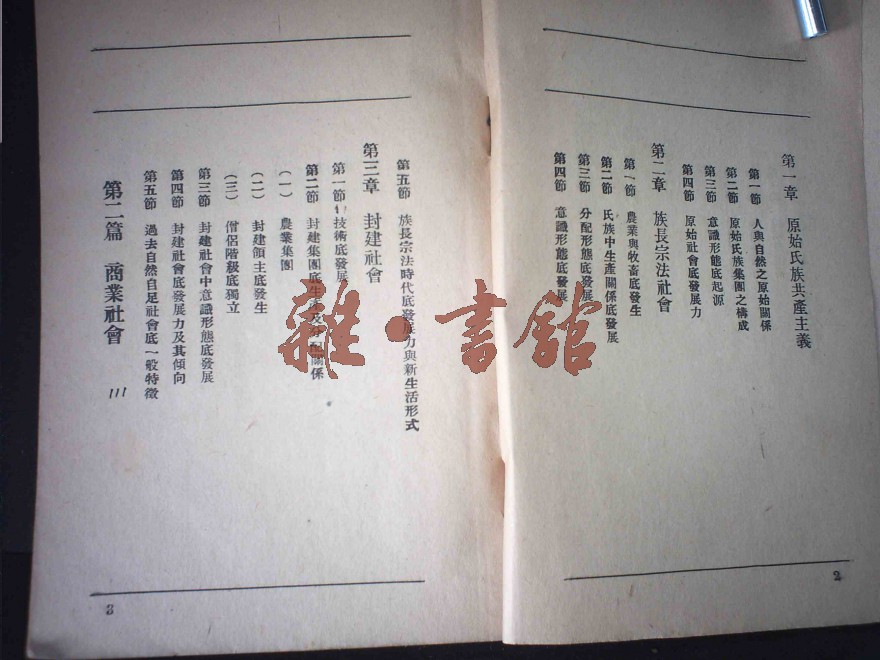 第一章 原始氏族共產主義
第一節 人與自然之原始關係
第二節 原始氏族集團之構成
第三節 意識形態底起源
第四節 原始社會底發展力
第二章 族長宗法社會
第一節 農業與牧畜底發生
第二節 氏族中生產關係底發展
第三節 分配形態底發展
第四節 意識形態底發展
2
第五節 族長宗法時代底發展力與新生活形式
第三章 封建社會
第一節 技術底發展
第二節 封建集團底生產及分配關係
(一) 農業集團
(二) 封建領主底發生
(三) 僧侶階級底獨立
第三節 封建社會中意識形態底發展
第四節 封建社會底發展力及其傾向
第五節 過去自然自足社會底一般特徵
第二篇 商業社會
111
3
雜·書館